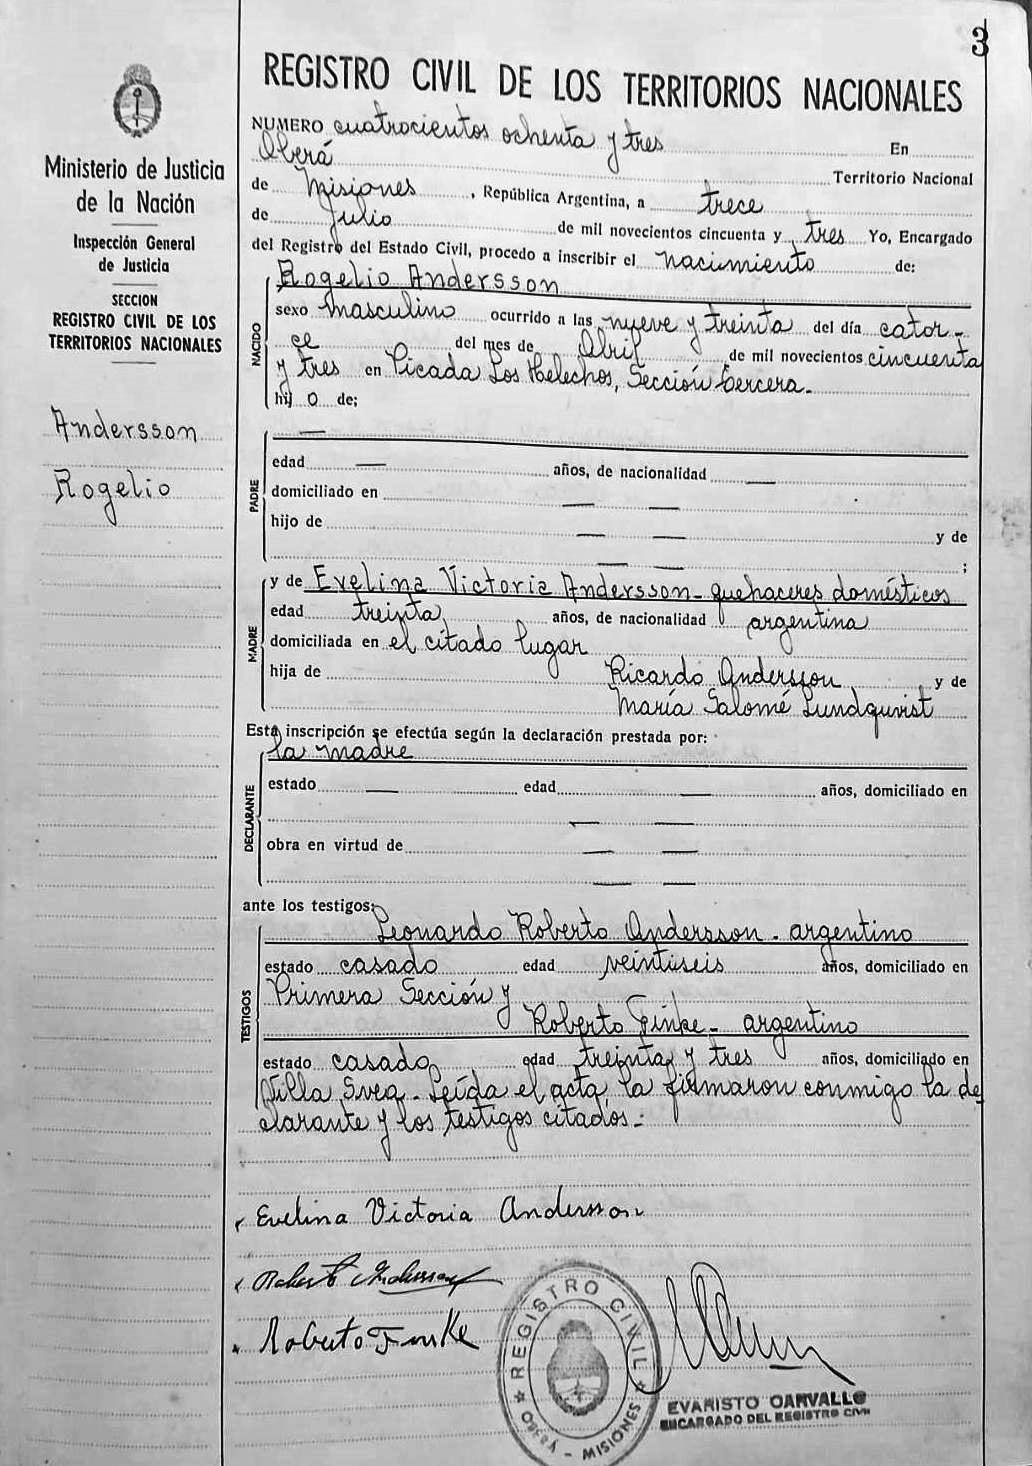 3
REGISTRO CIVIL DE LOS TERRITORIOS NACIONALES
Ministerio de Justicia
de la Nación
Inspección General
de Justicia
SECCION
REGISTRO CIVIL DE LOS
TERRITORIOS NACIONALES
Andersson
Rogelio
NUMERO cuatrocientos ochenta y tres En
Oberá Territorio Nacional
de Misiones, República Argentina, a trece
de Julio de mil novecientos cincuenta y tres Yo, Encargado
del Registro del Estado Civil, procedo a inscribir el nacimiento de:
NACIDO
Rogelio Andersson
sexo masculino ocurrido a las nueve y treinta del día cator-
ce del mes de Abril de mil novecientos cincuenta
y tres en Picada Los Helechos, Sección tercera.-
hij o de;
PADRE
—
edad — años, de nacionalidad —
domiciliado en — —
hijo de — — y de
— — ;
MADRE
y de Evelina Victoria Andersson - quehaceres domésticos
edad treinta años, de nacionalidad argentina
domiciliada en el citado lugar
hija de Ricardo Andersson y de
María Salomé Lundquvist
Esta inscripción se efectúa según la declaración prestada por:
la madre
DECLARANTE
estado — edad — años, domiciliado en
— —
obra en virtud de — —
— —
ante los testigos:
TESTIGOS
Leonardo Roberto Andersson - argentino
estado casado edad veintiseis años, domiciliado en
Primera Sección y
Roberto Finke - argentino
estado casado edad treinta y tres años, domiciliado en
Villa Svea - Leída el acta, la firmaron conmigo la de
clarante y los testigos citados.-
Evelina Victoria Andersson
Roberto Andersson
Roberto Finke
REGISTRO CIVIL
OBERÁ - MISIONES
EVARISTO CARVALLO
ENCARGADO DEL REGISTRO CIVIL